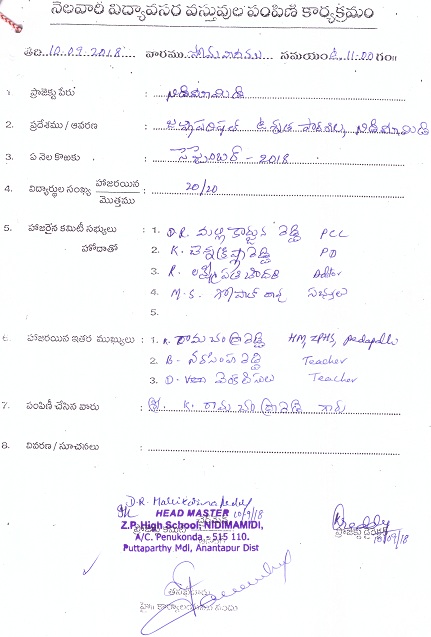 నెలవారీ విద్యావసర వస్తువుల పంపిణీ కార్యక్రమం
తేది 10.09.2018 వారము సోమవారము సమయం ఉ 11:00 గం॥
1. ప్రాజెక్టు పేరు : నిడిమామిడి
2. ప్రదేశము / ఆవరణ : జిల్లాపరిషత్ ఉన్నత పాఠశాల, నిడిమామిడి
3. ఏ నెల కొఱకు : సెప్టెంబర్ - 2018
4. విద్యార్థుల సంఖ్య హాజరయిన / మొత్తము : 20/20
5. హాజరైన కమిటీ సభ్యులు : 1. D.R. మల్లికార్జున రెడ్డి PCC
హోదాతో 2. K. చెన్నక్రిష్ణారెడ్డి PD
3. R. లక్ష్మీపతి
4. M.S. గోపాల్ సభ్యులు
5.
6. హాజరయిన ఇతర ముఖ్యులు : 1. K. రామచంద్రారెడ్డి HM, ZPHS, pedapalli
2. B. నరసింహారెడ్డి Teacher
3. D. వెంకటేసులు Teacher
7. పంపిణీ చేసిన వారు : శ్రీ. K. రామచంద్రారెడ్డి గారు
8. వివరణ / సూచనలు :
D.R. Mallikarjuna Reddy
HEAD MASTER 10/9/18
Z.P. High School, NIDIMAMIDI,
A/C. Penukonda - 515 110.
Puttaparthy Mdl, Anantapur Dist
ప్రాజెక్టు డైరెక్టర్
10/09/18